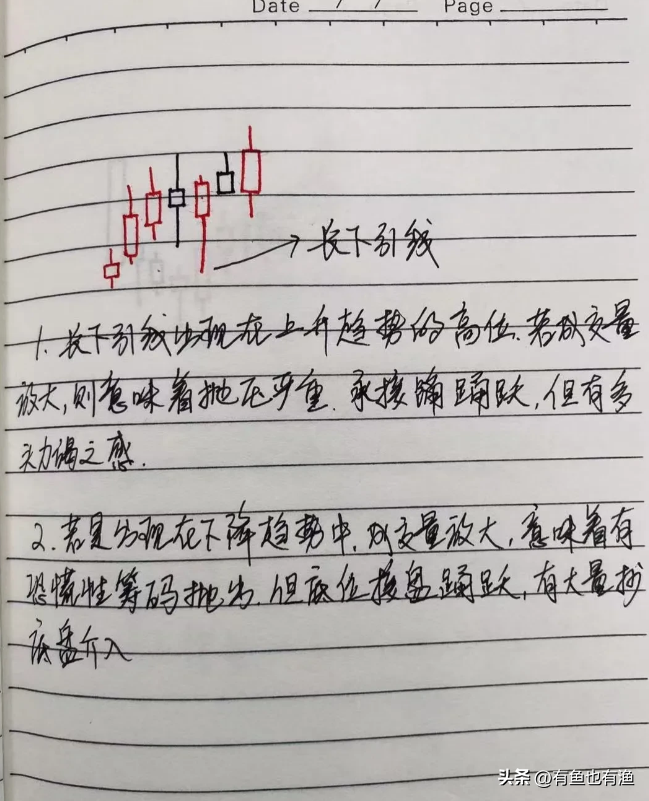 Date / / Page
长下引线
1. 长下引线出现在上升趋势的高位.若成交量
放大,则意味着抛压严重.承接踊跃,但有多
头力竭之感.
2.若是出现在下降趋势中.成交量放大,意味着有
恐慌性筹码抛出.但底位接盘踊跃,有大量抄
底盘介入
头条 @有鱼也有渔